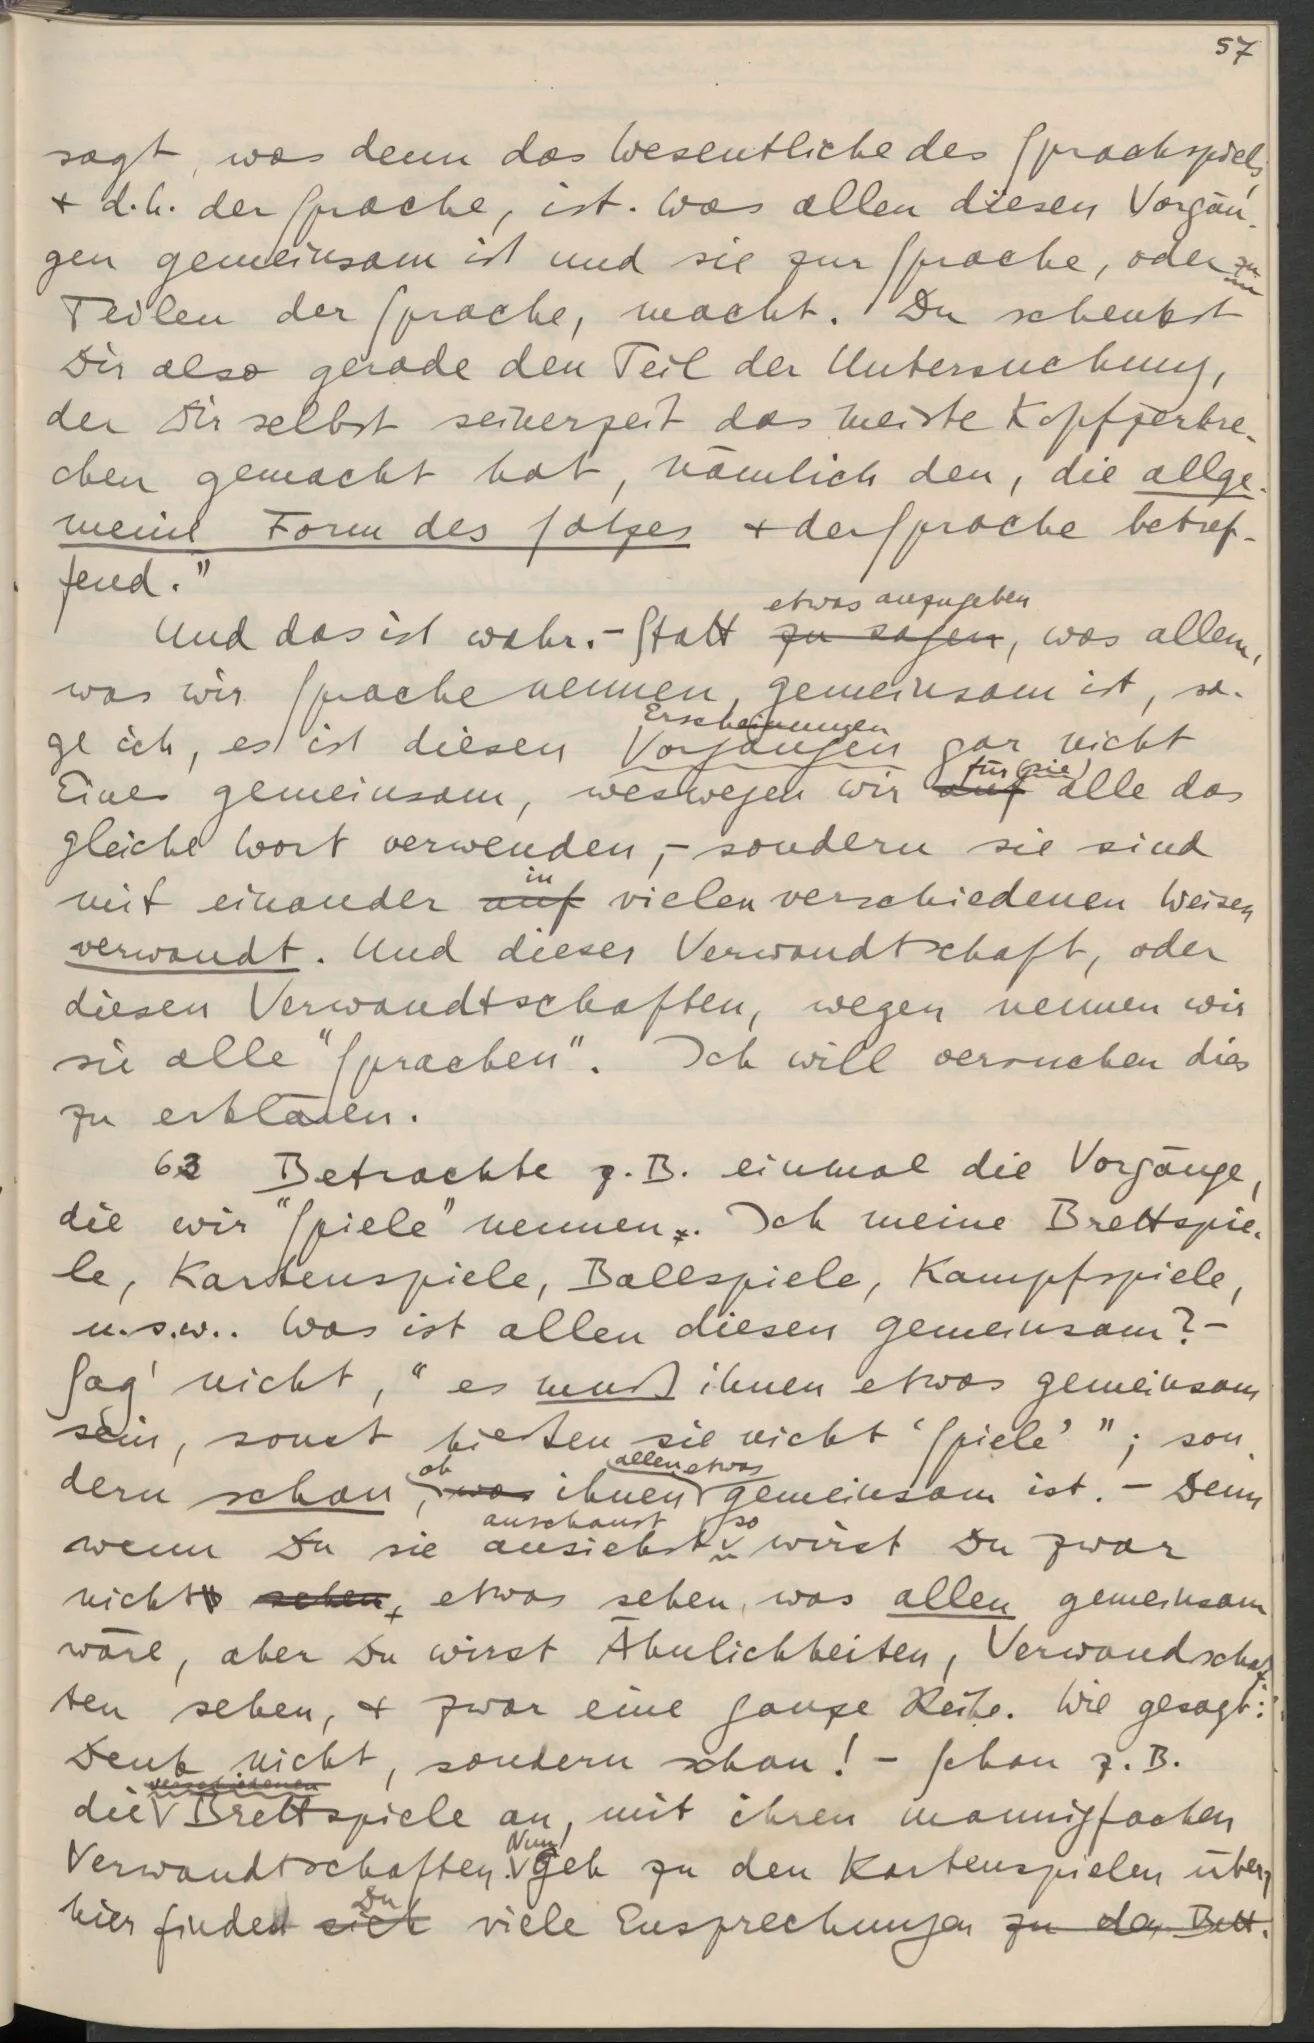 57
sagt, was denn das Wesentliche des Sprachspiels,
+ d.h. der Sprache, ist. Was allen diesen Vorgän-
gen gemeinsam ist und sie zur Sprache, oder zu
Teilen der Sprache, macht. Du schenkst
Dir also gerade den Teil der Untersuchung,
der Dir selbst seinerzeit das meiste Kopfzerbre-
chen gemacht hat, nämlich den, die allge-
meine Form des Satzes + der Sprache betref-
fend."
etwas anzugeben
Und das ist wahr. – Statt zu sagen, was allem,
was wir Sprache nennen, gemeinsam ist, sa-
Erscheinungen
ge ich, es ist diesen Vorgängen gar nicht
für (sie)
Eines gemeinsam, weswegen wir auf alle das
gleiche Wort verwenden, – sondern sie sind
in
mit einander auf vielen verschiedenen Weisen
verwandt. Und dieser Verwandtschaft, oder
diesen Verwandtschaften, wegen nennen wir
sie alle "Sprachen". Ich will versuchen dies
zu erklären.
63 Betrachte z.B. einmal die Vorgänge,
die wir "Spiele" nennen. Ich meine Brettspie-
le, Kartenspiele, Ballspiele, Kampfspiele,
u.s.w.. Was ist allen diesen gemeinsam? –
Sag' nicht, "es muß ihnen etwas gemeinsam
sein, sonst hießen sie nicht 'Spiele' "; son-
ob allen etwas
dern schau, was ihnen gemeinsam ist. – Denn
anschaust so
wenn Du sie ansiehst wirst Du zwar
nicht sehen, etwas sehen, was allen gemeinsam
wäre, aber Du wirst Ähnlichkeiten, Verwandschaf-
ten sehen, + zwar eine ganze Reihe. Wie gesagt:
Denk nicht, sondern schau! – Schau z.B.
verschiedenen
die Brettspiele an, mit ihren mannigfachen
Nun
Verwandtschaften. geh zu den Kartenspielen über,
Du
hier findest sich viele Ensprechungen zu den Brett-